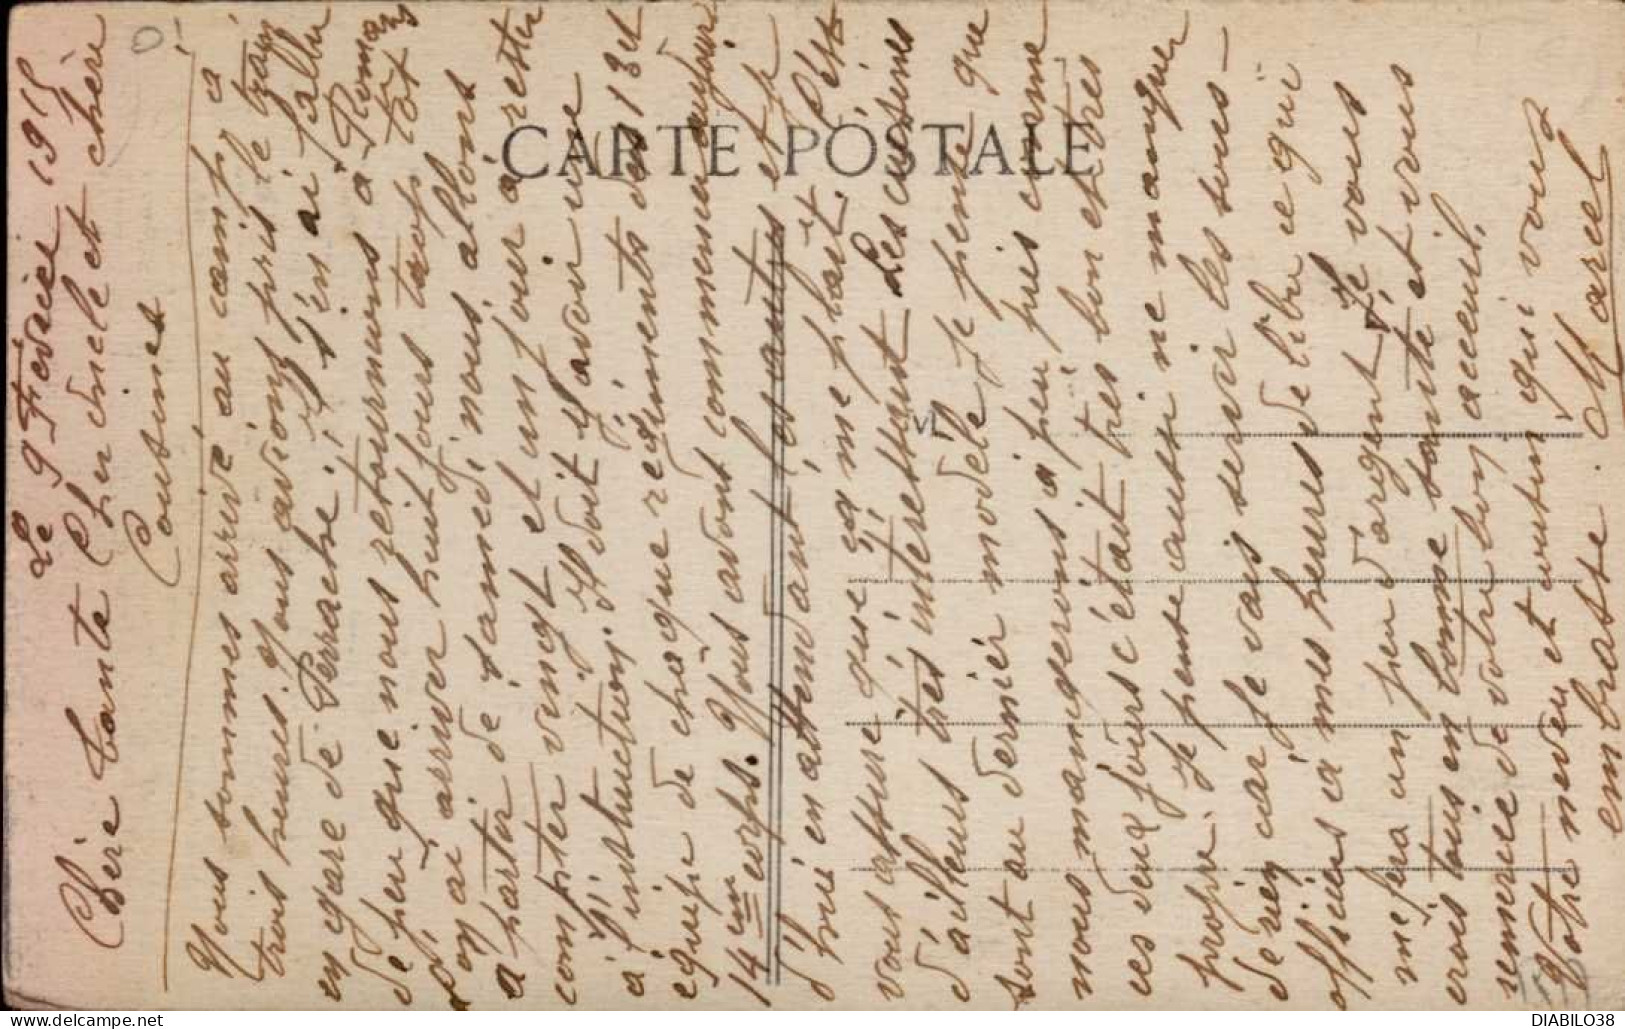 Le 9 Février 1915
Chère tante Cher oncle et chère
Cousines
Nous sommes arrivé au camp a
trois heures. Nous avions pris le train
en gare de Perrache, il s'en ai fallu
de peu que nous retournions à Romans
d'y arriver huit jours trop tôt
on ai
à partir de samedi, nous allons
compter vingt et un jour à rester
à l'instruction. Il doit y avoir une
équipe de chaque régiments des 13 et
14em corps. Nous avons commencer aujour
d'hui en attendant les autres et je
vous assure que ça me plait. C'est
d'ailleurs très intéressant. Les cuisines
sont au dernier modèle je pense que
nous mangerons à peu près comme
ces deux jours c'étant très bon et très
propre. Je pense aussi ne manquer
de rien car je vais servir les sous-
officiers à mes heures de libre ce qui
me fera un peu d'argent. Je vous
crois tous en bonne santé et vous
remercie de votre bon accueil.
Votre neveu et cousin qui vous
embrasse. Marcel
CARTE POSTALE
DIABILO38